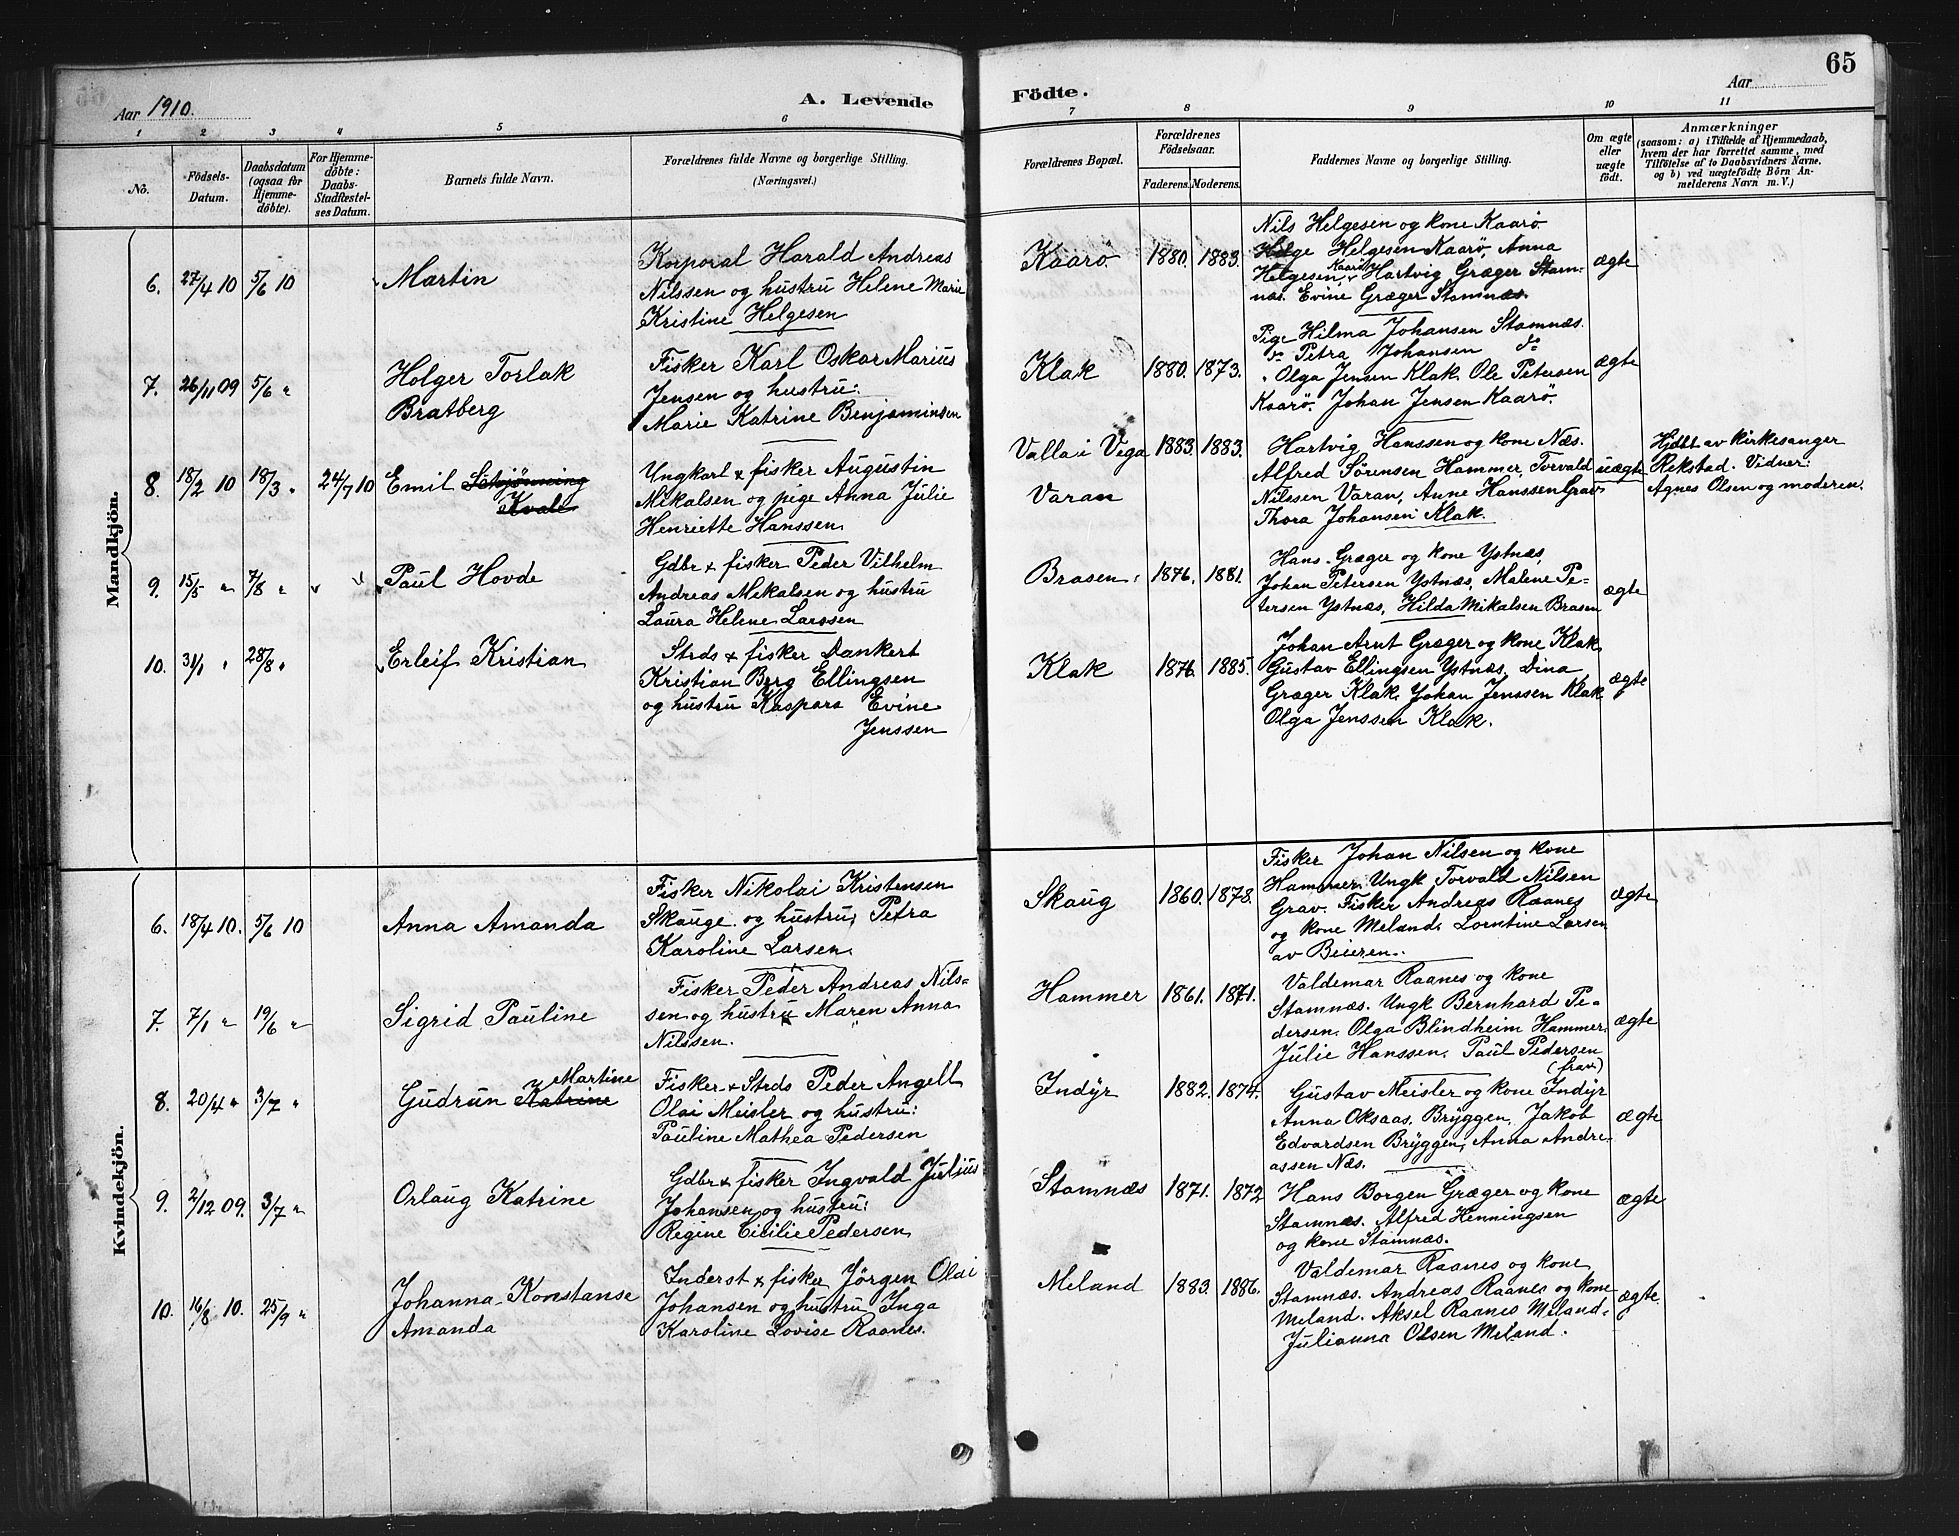 65
Aar 1910.
A. Levende Födte.
Aar
1 2 3 4 5 6 7 8 9 10 11
No.
Födsels-
Datum.
Daabsdatum
(ogsaa for
Hjemme-
döbte).
For Hjemme-
döbte:
Daabs-
Stadfæstel-
ses Datum.
Barnets fulde Navn.
Forældrenes fulde Navne og borgerlige Stilling.
(Næringsvei.)
Forældrenes Bopæl.
Forældrenes
Födselsaar.
Faderens. Moderens.
Faddernes Navne og borgerlige Stilling.
Om ægte
eller
uægte
födt.
Anmærkninger
(saasom: a) i Tilfælde af Hjemmedaab,
hvem der har forrettet samme, med
Tilföielse af to Daabsvidners Navne,
og b) ved uægtefödte Börn An-
melderens Navn m. V.)
Mandkjön.
6. 27/4 10 5/6 10
Martin
Korporal Harald Andreas
Nilssen og hustru Helene Marie
Kristine Helgesen
Kaarö 1880. 1883.
Nils Helgesen og kone Kaarö.
Helge Helgesen Kaarö, Anna
Helgesen, Kaarö, Hartvig Græger Stam-
næs. Evine Græger Stamnæs.
ægte
7. 26/11 09 5/6 "
Holger Torlak
Bratberg
Fisker Karl Oskar Marius
Jensen og hustru:
Marie Katrine Benjaminsen
Klak 1880. 1873.
Pige Hilma Johansen Stamnæs.
do Petra Johansen do
" Olga Jensen Klak. Ole Petersen
Kaarö. Johan Jensen Kaarö.
ægte
8. 18/2 10 18/3 " 24/7 10
Emil Schjönning
Kvale
Ungkarl & fisker Augustin
Mikalsen og pige Anna Julie
Henriette Hanssen
Valla i Vega 1883. 1883.
Varan
Hartvig Hanssen og kone Næs.
Alfred Sörensen Hammer, Torvald
Nilssen Varan, Anne Hanssen Grav
Thora Johansen Klak.
uægte
Hjdbt av kirkesanger
Rekstad. Vidner:
Agnes Olsen og moderen.
9. 15/5 " 7/8 "
Paul Hovde
Gdbr & fisker Peder Vilhelm
Andreas Mikalsen og hustru
Laura Helene Larssen
Brasen 1876. 1881.
Hans Græger og kone Ystnæs,
Johan Petersen Ystnæs, Malene Pe-
tersen Ystnæs, Hilda Mikalsen Brasen
ægte
10. 31/1 " 28/8 "
Erleif Kristian
Strds & fisker Dankert
Kristian Berg Ellingsen
og hustru Kaspara Evine
Jenssen
Klak 1876. 1885.
Johan Arnt Græger og kone Klak
Gustav Ellingsen Ystnæs, Dina
Græger Klak. Johan Jenssen Klak
Olga Jenssen Klak.
ægte
Kvindekjön.
6. 18/4 10. 5/6 10
Anna Amanda
Fisker Nikolai Kristensen
Skauge og hustru, Petra
Karoline Larsen.
Skaug 1860. 1878.
Fisker Johan Nilsen og kone
Hammer. Ungk Torvald Nilsen
Grav. Fisker Andreas Raanes
og kone Meland. Lorntine Larsen
av Beieren.
ægte
7. 7/1 " 19/6 "
Sigrid Pauline
Fisker Peder Andreas Nils-
sen og hustru Maren Anna
Nilssen.
Hammer 1861. 1871.
Valdemar Raanes og kone
Stamnæs. Ungk Bernhard Pe-
dersen. Olga Blindheim Hammer.
Julie Hanssen. Paul Pedersen
(frav)
ægte
8. 20/4 " 3/7 "
Martine
Gudrun Katrine
Fisker & Strds Peder Angell
Olai Meisler og hustru:
Pauline Mathea Pedersen
Indyr 1882. 1874.
Gustav Meisler og kone Indyr
Anna Oksaas. Bryggen, Jakob
Edvardsen Bryggen, Anna Andre-
assen Næs.
ægte
9. 2/12 09. 3/7 "
Orlaug Katrine
Gdbr & fisker Ingvald Julius
Johansen og hustru:
Regine Cicilie Pedersen
Stamnæs 1871. 1872
Hans Borgen Græger og kone
Stamnæs. Alfred Henningsen
og kone Stamnæs.
ægte
10. 16/8 10. 25/9 "
Johanna Konstanse
Amanda
Inderst & fisker Jörgen Olai
Johansen og hustru Inga
Karoline Lovise Raanes.
Meland 1883. 1886.
Valdemar Raanes og kone
Stamnæs. Andreas Raanes og kone
Meland. Aksel Raanes Meland.
Julianna Olsen Meland.
ægte.